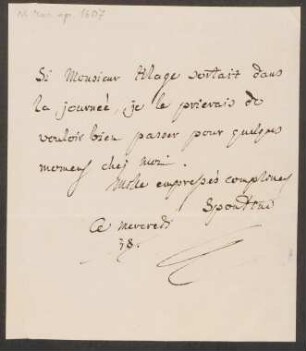 Si Monsieur Alage sortait dans
la journée, je le prierais de
vouloir bien passer pour quelques
momens chez moi.
Mille empressés complimens
Spontini
Ce Mercredi